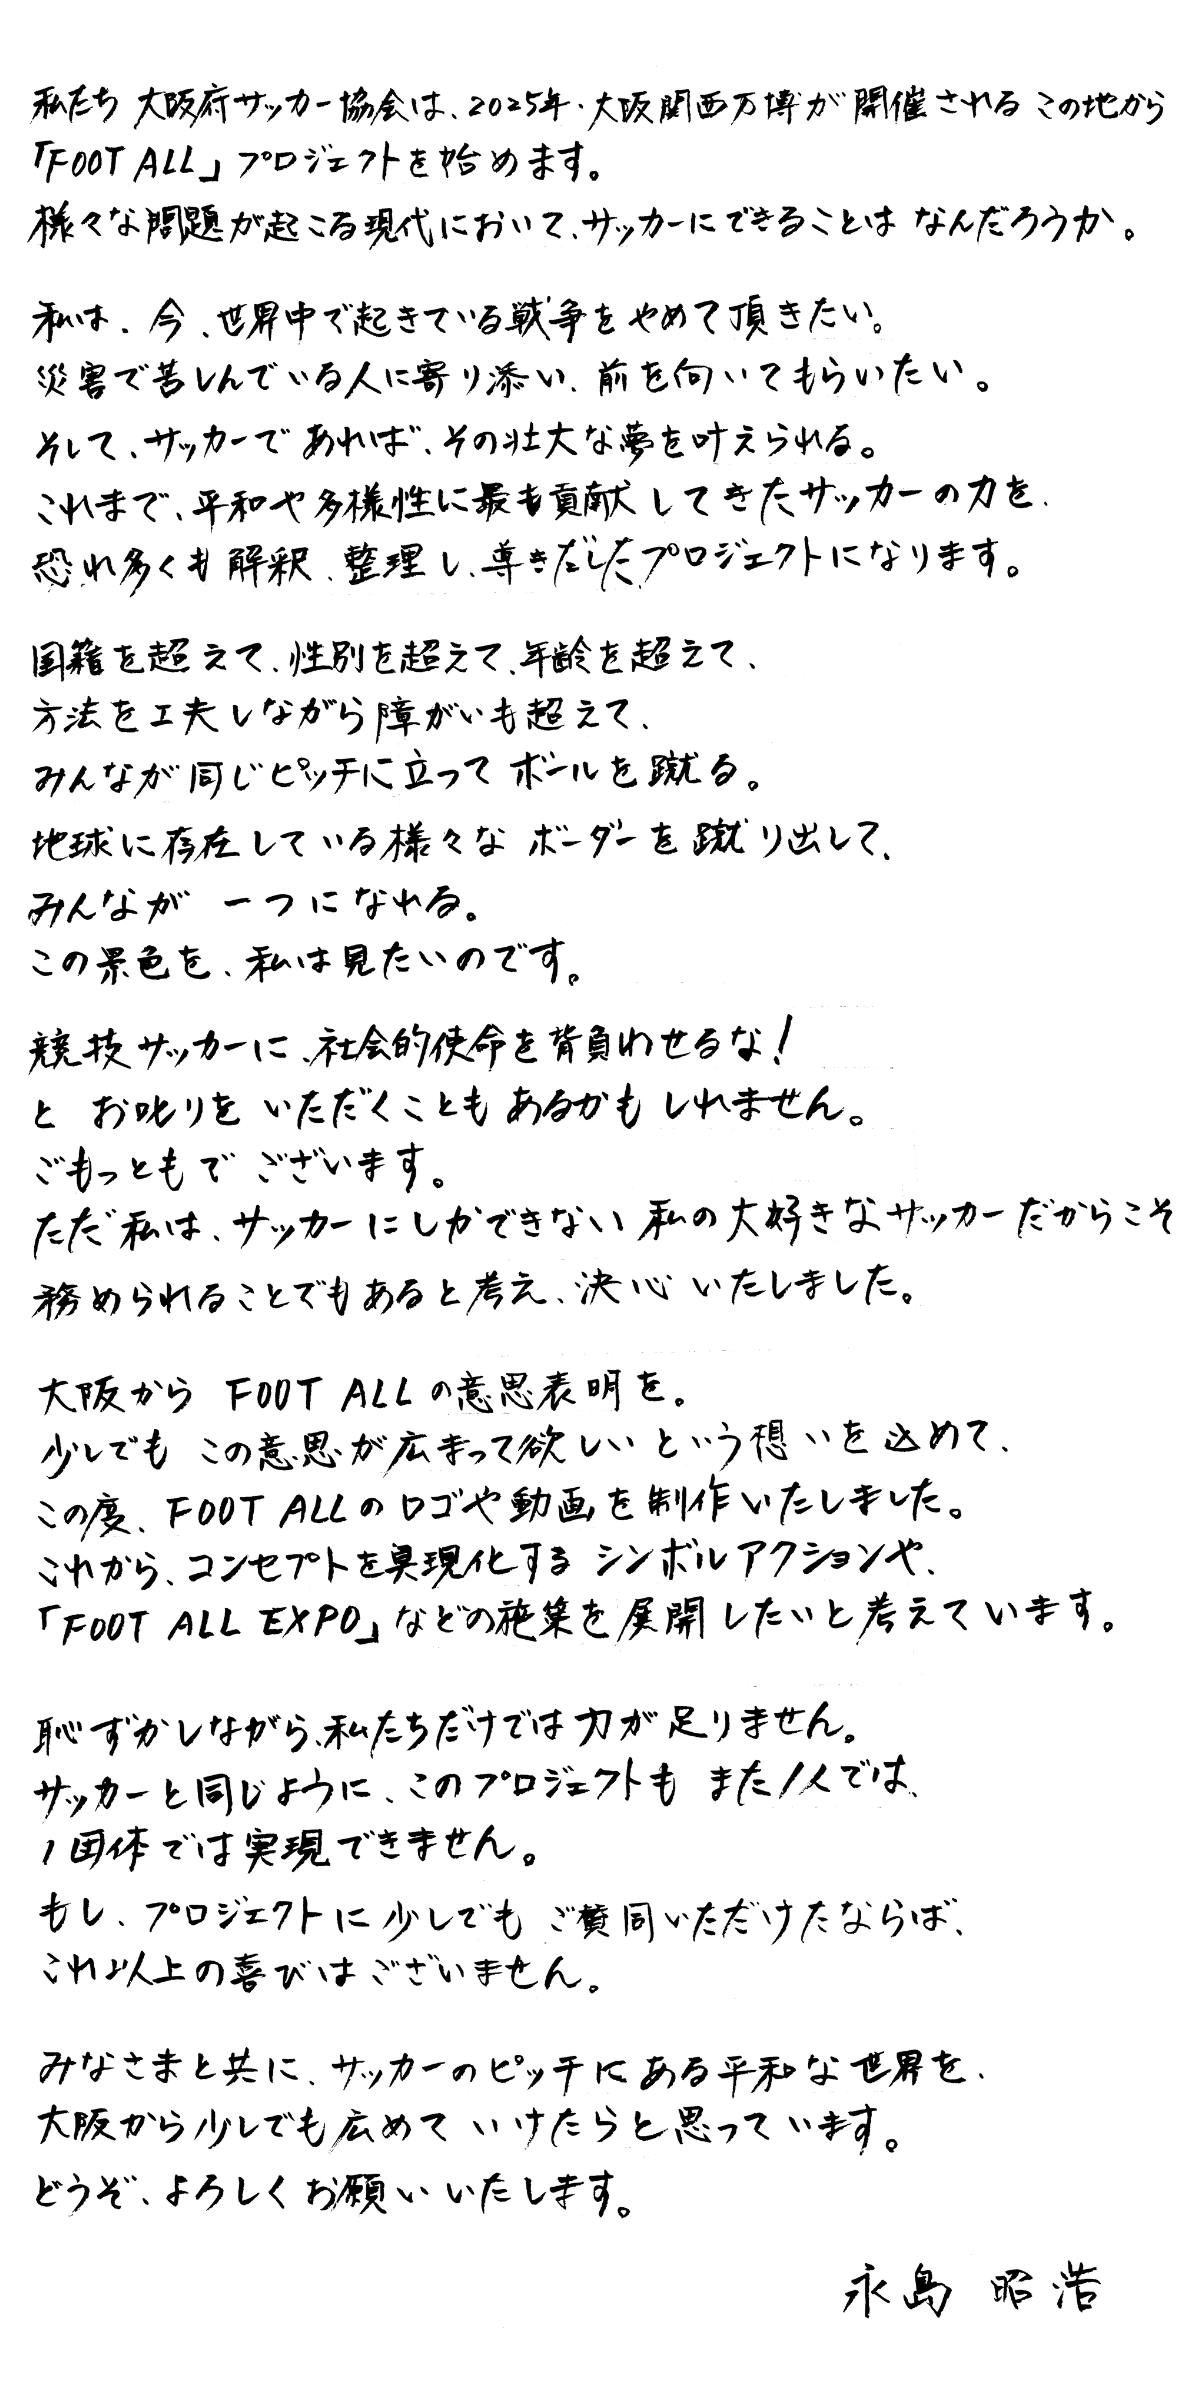 私たち 大阪府サッカー協会は、2025年・大阪関西万博が開催される この地から
「FOOT ALL」プロジェクトを始めます。
様々な問題が起こる現代において、サッカーにできることは なんだろうか。
私は、今、世界中で起きている戦争をやめて頂きたい。
災害で苦しんでいる人に寄り添い、前を向いてもらいたい。
そして、サッカーであれば、その壮大な夢を叶えられる。
これまで、平和や多様性に最も貢献してきたサッカーの力を、
恐れ多くも解釈、整理し、導きだしたプロジェクトになります。
国籍を超えて、性別を超えて、年齢を超えて、
方法を工夫しながら障がいも超えて、
みんなが同じピッチに立って ボールを蹴る。
地球に存在している様々な ボーダーを蹴り出して、
みんなが 一つになれる。
この景色を、私は見たいのです。
競技サッカーに、社会的使命を背負わせるな!
と お叱りを いただくことも あるかもしれません。
ごもっともで ございます。
ただ私は、サッカーにしかできない 私の大好きなサッカーだからこそ
務められることでもあると考え、決心いたしました。
大阪から FOOT ALLの意思表明を。
少しでも この意思が広まって欲しい という想いを込めて、
この度、FOOT ALLのロゴや動画を制作いたしました。
これから、コンセプトを具現化する シンボルアクションや、
「FOOT ALL EXPO」などの施策を展開したいと考えています。
恥ずかしながら、私たちだけでは力が足りません。
サッカーと同じように、このプロジェクトも また1人では、
1団体では実現できません。
もし、プロジェクトに少しでも ご賛同いただけたならば、
これ以上の喜びはございません。
みなさまと共に、サッカーのピッチにある平和な世界を、
大阪から少しでも広めていけたらと思っています。
どうぞ、よろしくお願いいたします。
永島 昭浩